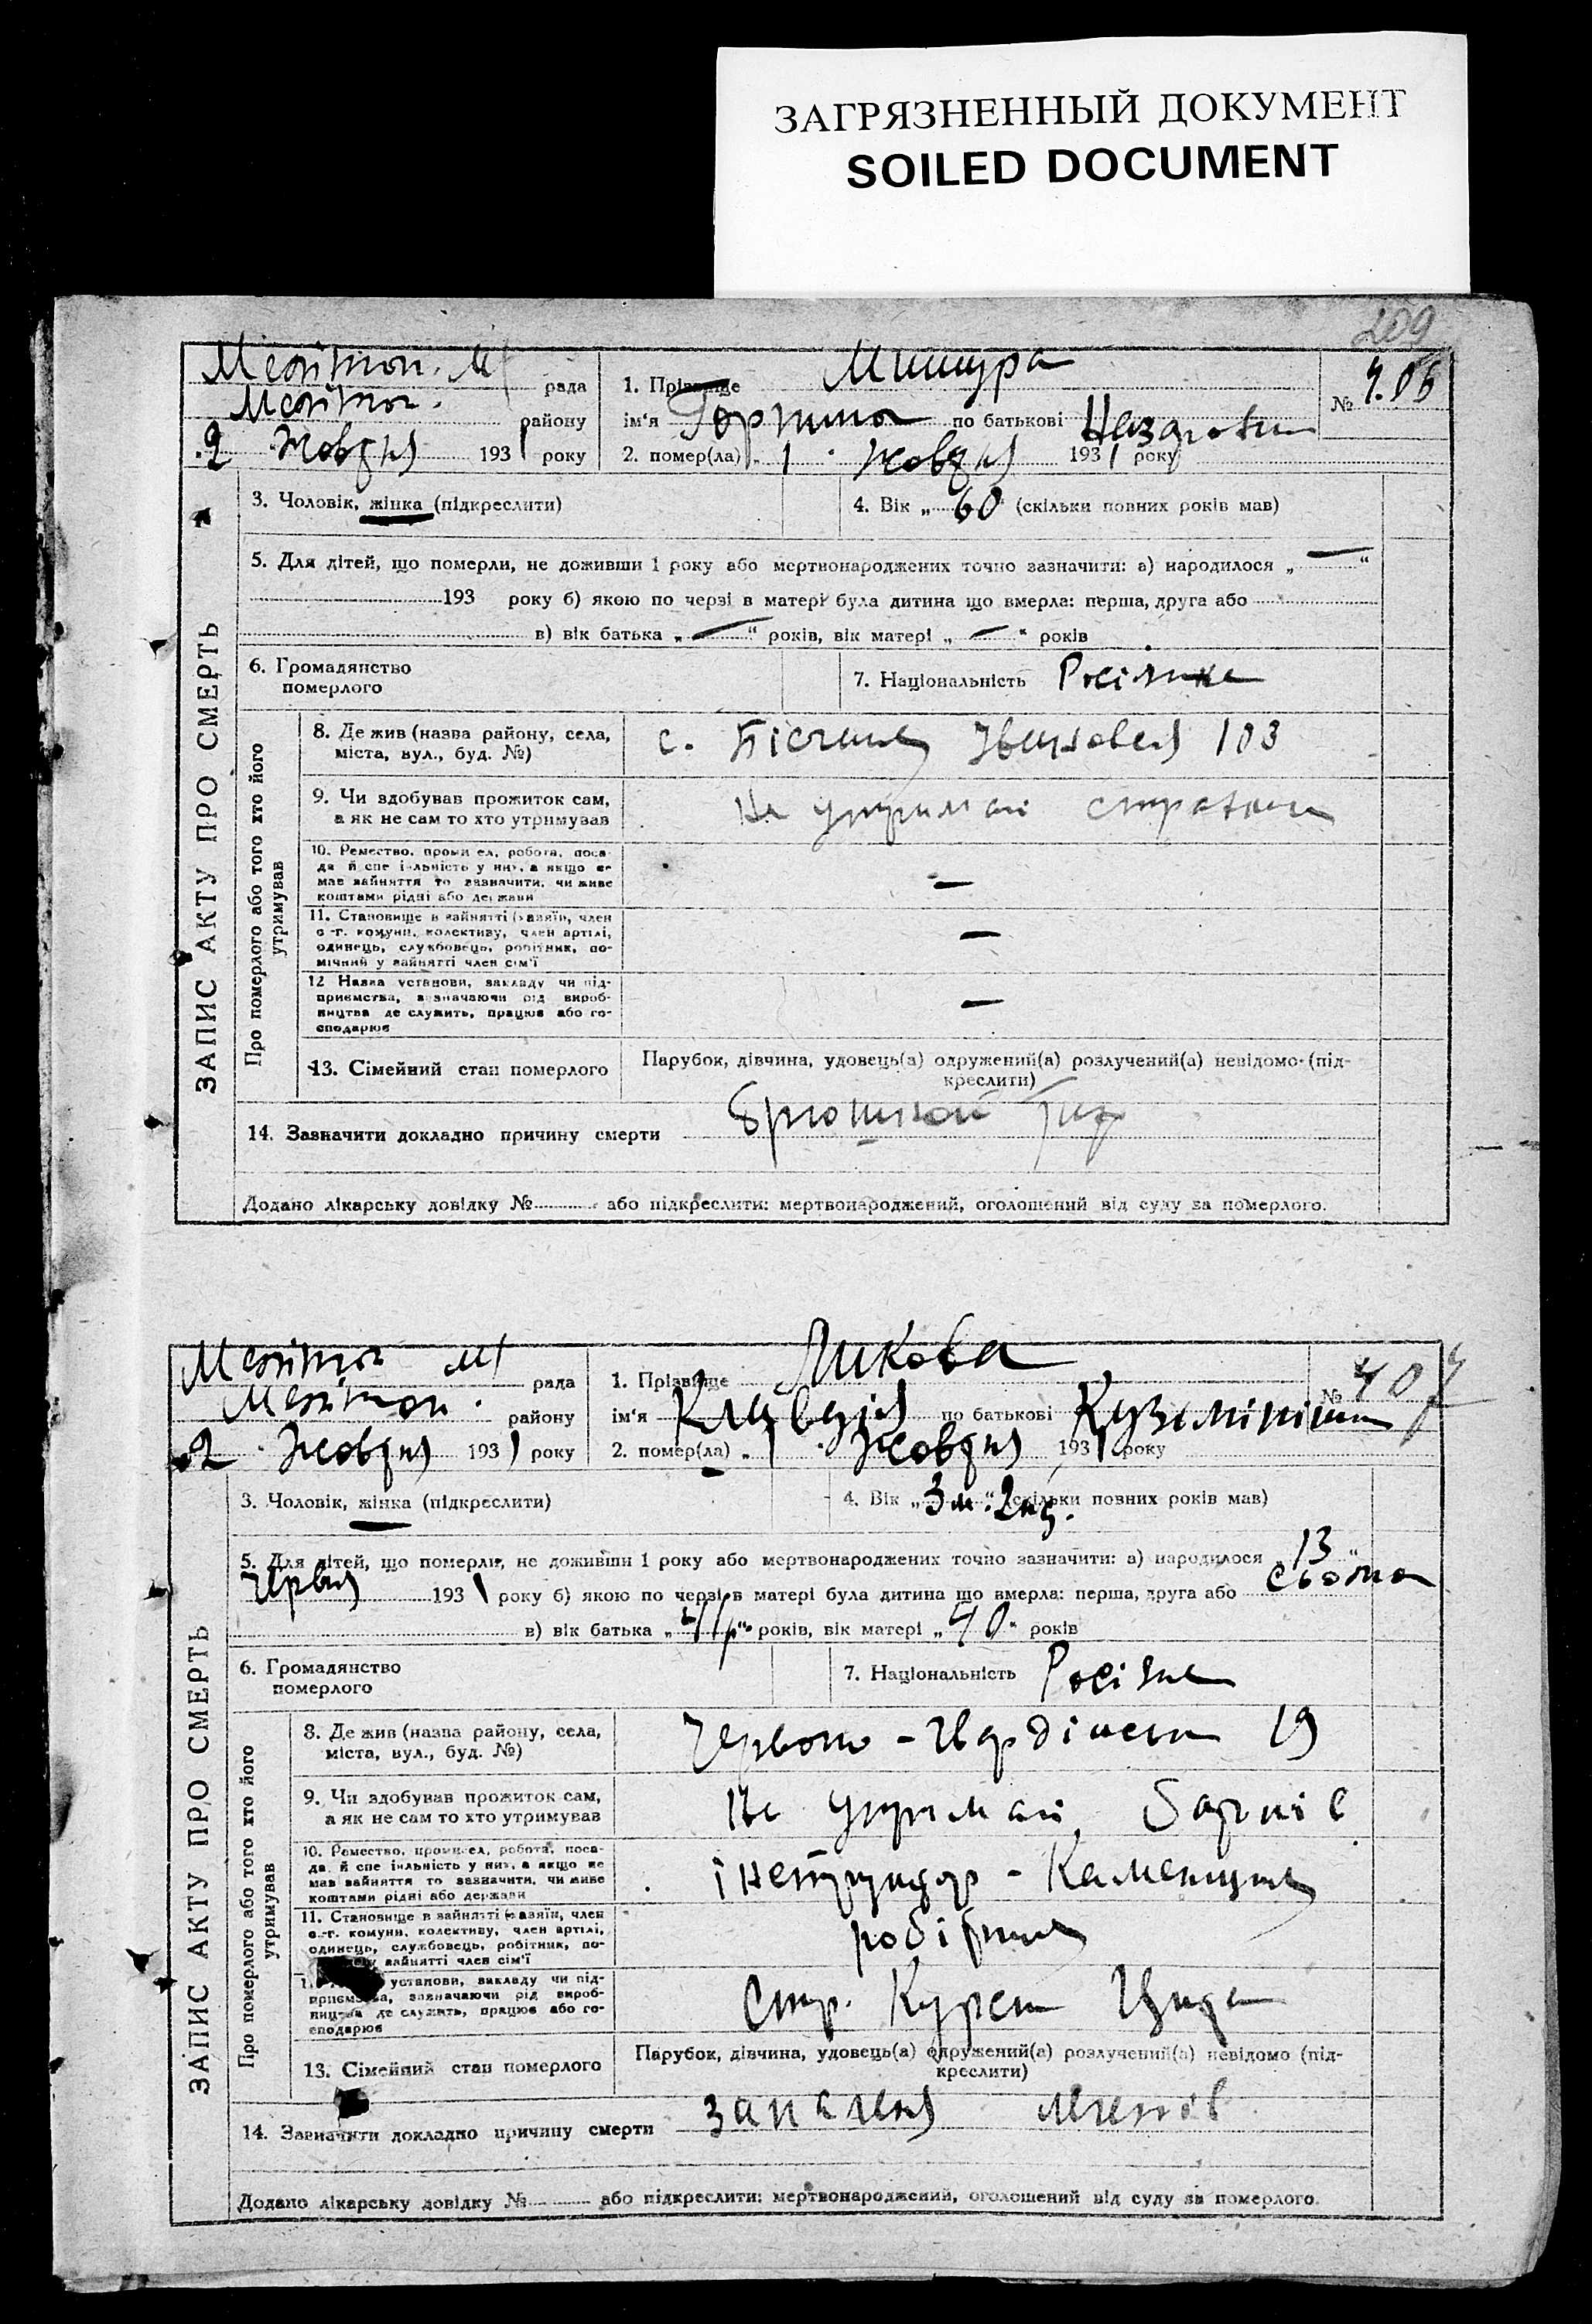 ЗАГРЯЗНЕННЫЙ ДОКУМЕНТ
SOILED DOCUMENT
209
рада
району
2 Жовтня 1931 року
1. Прізвище Мишура
ім'я по батькові
2. помер(ла) „ 1 Жовтня 1931 року
№ 406
ЗАПИС АКТУ ПРО СМЕРТЬ
3. Чоловік, жінка (підкреслити)
4. Вік „ 60 " (скільки повних років мав)
5. Для дітей, що померли, не доживши 1 року або мертвонароджених точно зазначити: а) народилося „ — "
193 року б) якою по черзі в матері була дитина що вмерла: перша, друга або
в) вік батька „ — " років, вік матері „ — " років
6. Громадянство
померлого
7. Національність Росіянка
Про померлого або того хто його
утримував
8. Де жив (назва району, села,
міста, вул., буд. №)
с. 103
9. Чи здобував прожиток сам,
а як не сам то хто утримував
На утриман
10. Ремество, промисел, робота, поса-
да й спеціяльність у них, а якщо не
мав зайняття то зазначити, чи живе
коштами рідні або держави
—
11. Становище в зайнятті (хазяїн, член
с.-г. комуни, колективу, член артілі,
одинець, службовець, робітник, по-
мічний у зайнятті член сім'ї
—
12 Назва установи, закладу чи під-
приємства, зазначаючи рід вироб-
ництва де служить, працює або го-
сподарює
—
13. Сімейний стан померлого
Парубок, дівчина, удовець(а) одружений(а) розлучений(а) невідомо (під-
креслити)
14. Зазначити докладно причину смерти Брюшной тиф
Додано лікарську довідку № або підкреслити: мертвонароджений, оголошений від суду за померлого.
рада
району
2 Жовтня 1931 року
1. Прізвище Ликова
ім'я Клавдія по батькові Кузьмінішна
2. помер(ла) „ 1 Жовтня 1931 року
№ 407
ЗАПИС АКТУ ПРО СМЕРТЬ
3. Чоловік, жінка (підкреслити)
4. Вік „ 3 м. " (скільки повних років мав)
5. Для дітей, що померли, не доживши 1 року або мертвонароджених точно зазначити: а) народилося „ 13 "
Червня 1931 року б) якою по черзі в матері була дитина що вмерла: перша, друга або сьома
в) вік батька „ " років, вік матері „ 40 " років
6. Громадянство
померлого
7. Національність Росіянка
Про померлого або того хто його
утримував
8. Де жив (назва району, села,
міста, вул., буд. №)
Червоно-Гвардійська 19
9. Чи здобував прожиток сам,
а як не сам то хто утримував
На утриман батьків
10. Ремество, промисел, робота, поса-
да й спеціяльність у них, а якщо не
мав зайняття то зазначити, чи живе
коштами рідні або держави
інструктор - Каменщик
11. Становище в зайнятті (хазяїн, член
с.-г. комуни, колективу, член артілі,
одинець, службовець, робітник, по-
зайнятті член сім'ї
робітник
установи, закладу чи під-
приємства, зазначаючи рід вироб-
ництва де служить, працює або го-
сподарює
Стр. Курси
13. Сімейний стан померлого
Парубок, дівчина, удовець(а) одружений(а) розлучений(а) невідомо (під-
креслити)
14. Зазначити докладно причину смерти запаленя легенів
Додано лікарську довідку № або підкреслити: мертвонароджений, оголошений від суду за померлого.